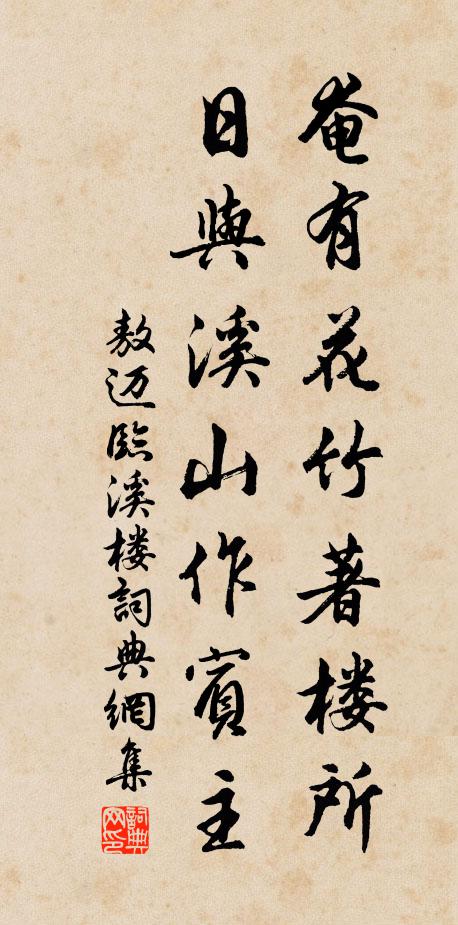 奄有花竹著楼所
日與溪山作賓主
敖迈臨溪楼詞典網集
詞典网印